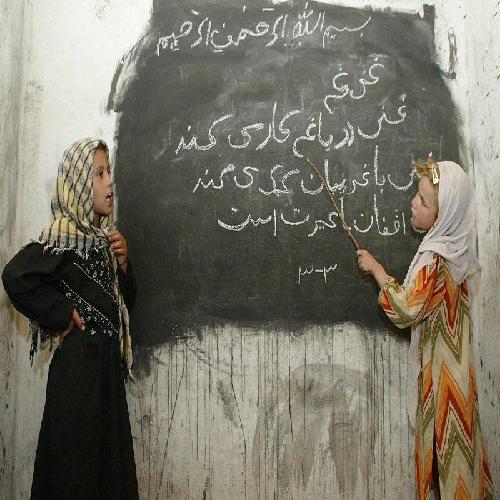 بسم الله الرحمن الرحیم
غنی غم
غنی در باغم کار می کند
غنی با غریبان کمک می کند
افغان باغیرت است
۳-۳